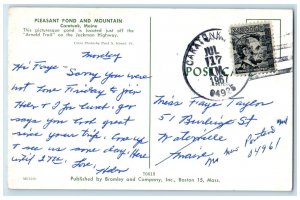 PLEASANT POND AND MOUNTAIN
Caratunk, Maine
This picturesque pond is located just off the
"Arnold Trail" on the Jackman Highway.
Monday
Hi Faye - Sorry you were
not home Tuesday to join
Helen & I for lunch. gov
says you look great
since your trip. Come up
& see us some day. Here
until
Love,
Helen
CARATUNK,
JUL
17
AM
04925
POSTC
Miss Faye Taylor
51 Burleigh St
Waterville
Maine
New Portland
Me
04961
Published by Bromley and Company, Inc., Boston 15, Mass.